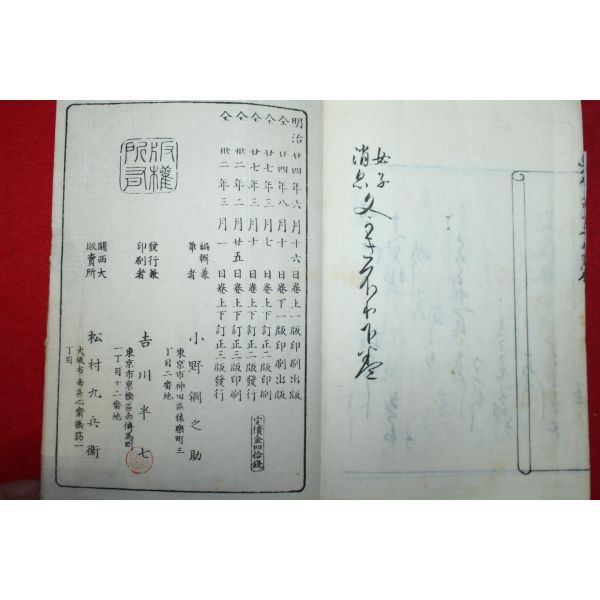 女子
消息文手本下巻
明治廿四年六月十六日巻上一版印刷出版
仝廿四年八月十日巻下一版印刷出版
仝廿七年三月七日巻上下訂正二版印刷
仝廿七年三月十日巻上下訂正二版發行
仝卅二年二月廿五日巻上下訂正三版印刷
仝卅二年三月一日巻上下訂正三版發行
定價金四拾錢
編輯兼
筆者
小野鵞之助
東京市神田區猿樂町三
丁目二番地
發行兼
印刷者
吉川半七
東京市京橋區南傳馬町
一丁目十二番地
關西大
販賣所
松村九兵衛
大坂市南區心齋橋筋一
丁目
版權
所有